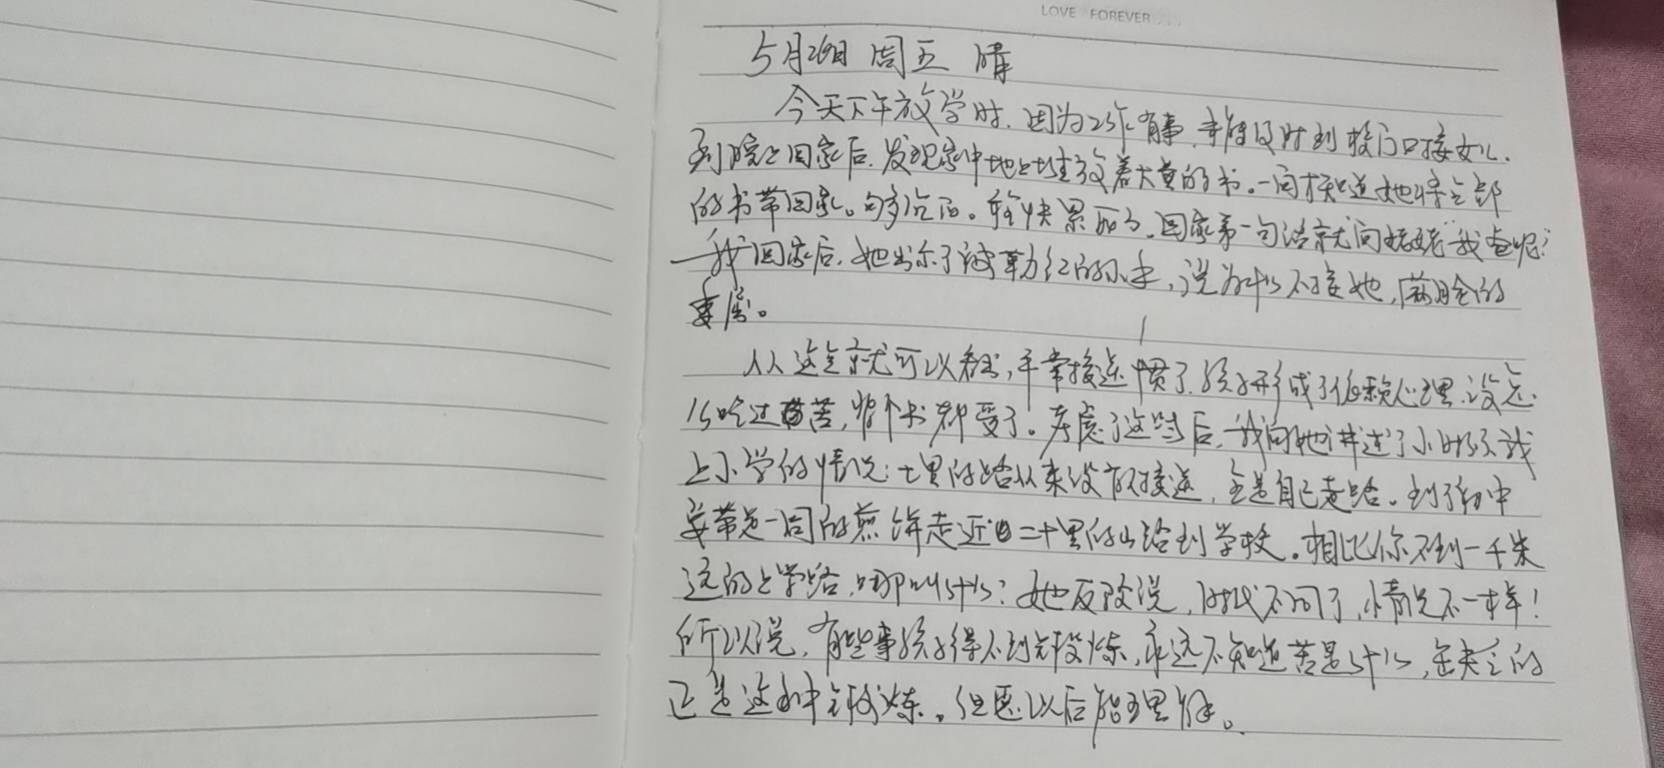 LOVE FOREVER
5月26日 周五 晴
今天下午放学时,因为工作有事,未能及时到校门口接女儿.
到晚上回家后,发现家中地上堆放着大量的书。一问才知道她将全部
的书带回家。够多。快累了。回家第一句话就问妈妈"我爸呢?"
我回家后,她出示了被勒红的小手,说为什么不接她,满脸的
委屈。
从这点就可以看出,平常接送惯了,孩子形成了依赖心理,没怎
么吃过苦,都受了。考虑了这些后,我向她讲述了小时候我
上小学的情况:七里的路从来没有接送,全是自己走路。到了初中
要带足一周的煎饼走近二十里的山路到学校。相比你不到一千米
远的上学路,那叫什么?她反驳说,时代不同了,情况不一样!
所以说,有些事孩子得不到锻炼,永远不知道苦是什么,缺乏的
正是这种锻炼。但愿以后能理解。